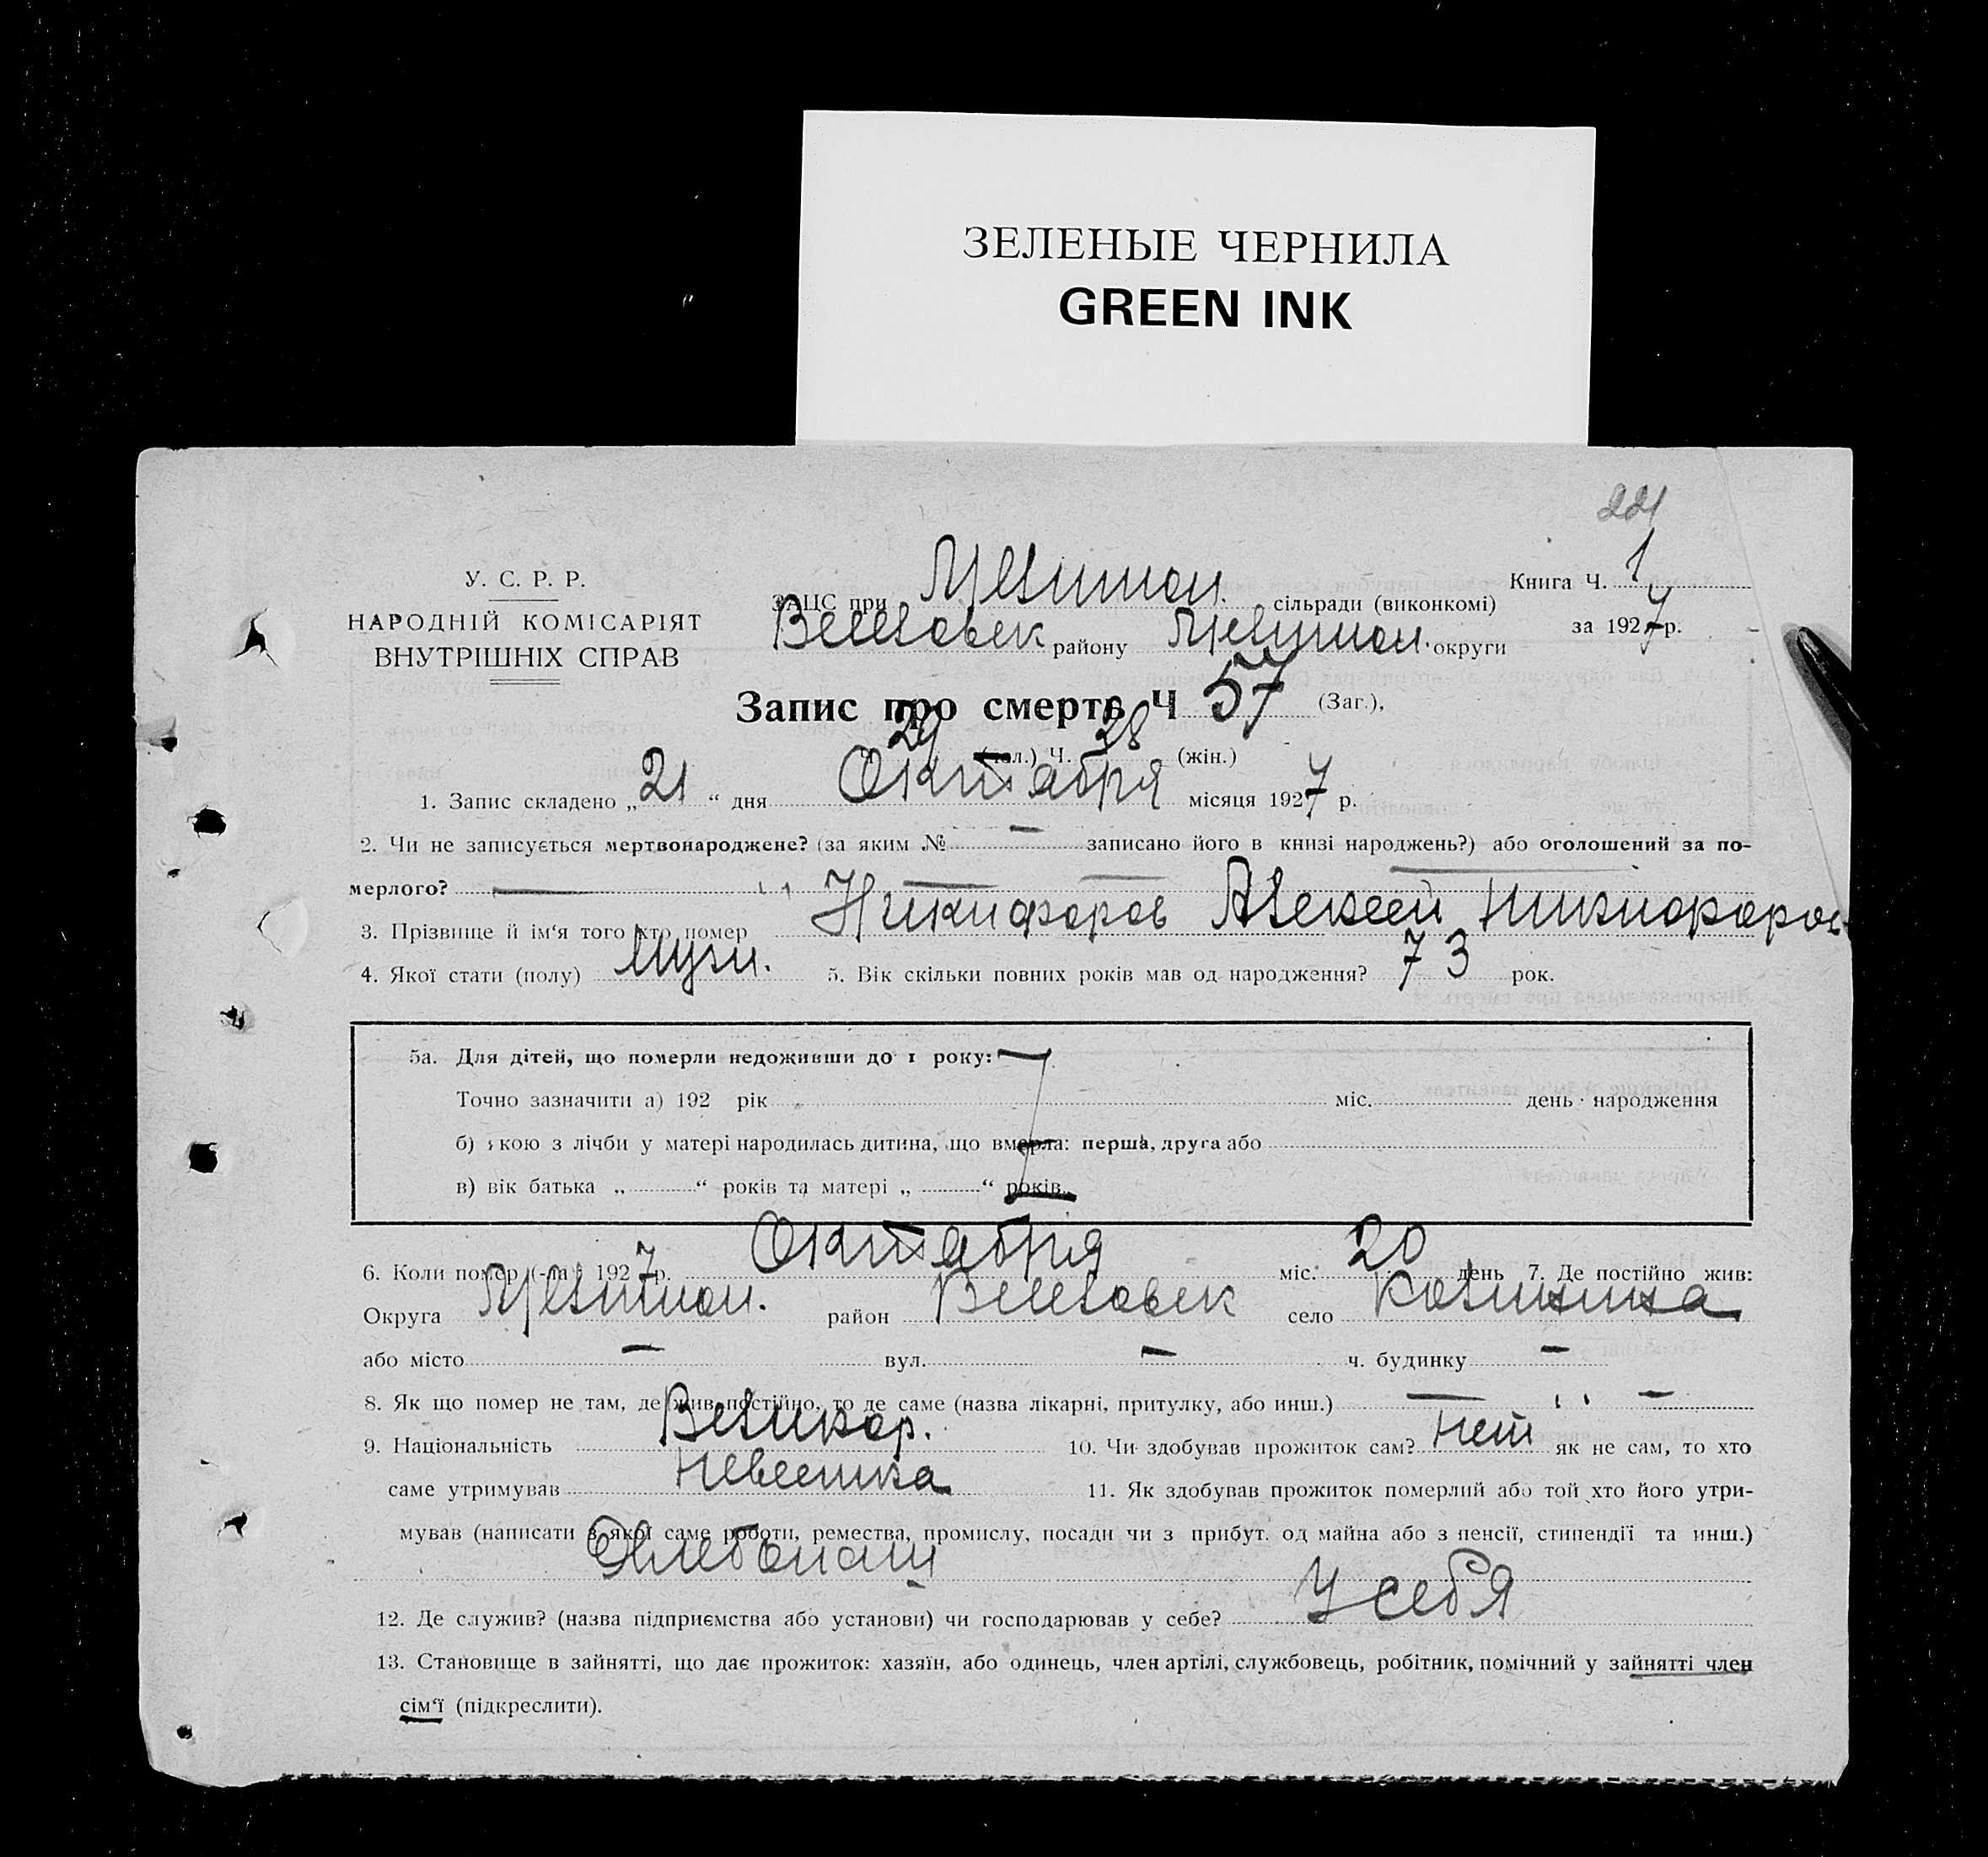 ЗЕЛЕНЫЕ ЧЕРНИЛА
GREEN INK
221
У. С. Р. Р.
НАРОДНІЙ КОМІСАРІЯТ
ВНУТРІШНІХ СПРАВ
Книга Ч. 1
за 1927 р.
ЗАЦС при сільради (виконкомі)
району округи
Запис про смерть Ч 57 (Заг.),
29 (чол.) Ч. 28 (жін.)
1. Запис складено „21“ дня Октября місяця 1927 р.
2. Чи не записується мертвонароджене? (за яким № — записано його в книзі народжень?) або оголошений за по-
мерлого? —
3. Прізвище й ім‘я того хто помер Никифоров Алексей Никифоров
4. Якої стати (полу) Мужч. 5. Вік скільки повних років мав од народження? 73 рок.
5а. Для дітей, що померли недоживши до 1 року:
Точно зазначити а) 192 рік міс. день народження
б) якою з лічби у матері народилась дитина, що вмерла: перша, друга або
в) вік батька „ “ років та матері „ “ років
6. Коли помер (-ла) 1927 р. Октября міс. 20 день 7. Де постійно жив:
Округа район село
або місто — вул. — ч. будинку —
8. Як що помер не там, де жив постійно, то де саме (назва лікарні, притулку, або инш.) — „ —
9. Національність Великор. 10. Чи здобував прожиток сам? Нет як не сам, то хто
саме утримував Невестка 11. Як здобував прожиток померлий або той хто його утри-
мував (написати з якої саме роботи, ремества, промислу, посади чи з прибут. од майна або з пенсії, стипендії та инш.)
Хлебопаш
12. Де служив? (назва підприємства або установи) чи господарював у себе? У себя
13. Становище в зайнятті, що дає прожиток: хазяїн, або одинець, член артілі, службовець, робітник, помічний у зайнятті член
сім‘ї (підкреслити).